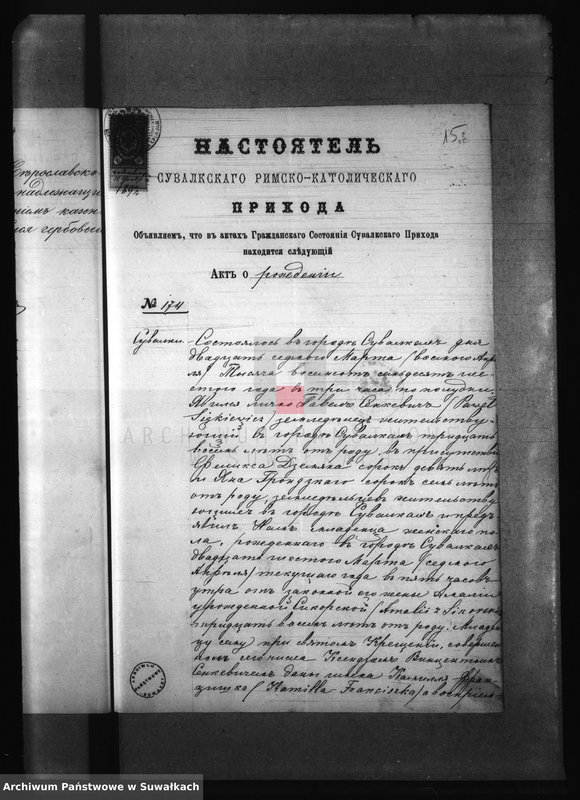 15
1892
НАСТОЯТЕЛЬ
СУВАЛКСКАГО РИМСКО-КАТОЛИЧЕСКАГО
ПРИХОДА
Объявляемъ, что въ актахъ Гражданскаго Состоянія Сувалкскаго Прихода
находится слѣдующій
Актъ о рожденіи
№ 174
Сувалки. Состоялось въ городѣ Сувалкахъ дня
двадцать седьмого Марта (восьмого Апрѣ
ля) Тысяча восемьсотъ семьдесятъ шес-
того года въ три часа по полудни.
Явился лично Павелъ Сенкевичъ (Paweł
Siękiewicz) земледѣлецъ жительству-
ющій въ городѣ Сувалкахъ тридцать
восемь лѣтъ отъ роду, въ присутствіи
Феликса сорокъ девять лѣтъ
и Яна Грондзкаго сорокъ семь лѣтъ
отъ роду, земледѣльцевъ жительству
ющихъ въ городѣ Сувалкахъ и предъ
явилъ Намъ младенца женскаго по
ла, рожденнаго въ городѣ Сувалкахъ
двадцать шестого Марта (седьмого
Апрѣля) текущаго года въ пять часовъ
утра отъ законной его жены Амаліи
урожденной Сикорской (Amalii z Sikorskich)
тридцать восемь лѣтъ отъ роду. Младен
цу сему при святомъ Крещеніи, совершен
номъ сего числа Ксендзомъ Винцентомъ
Сенкевичемъ даны имена Камилля Фран-
цишка (Kamilla Franciszka) а воспріем-
ARCHIWUM
Archiwum Państwowe w Suwałkach